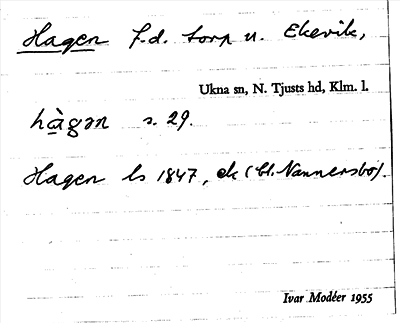 Hagen f.d. torp u. Ekevik,
Ukna sn, N. Tjusts hd, Klm. l.
hàgən s. 29.
Hagen ls 1847, ek (bl. Nannersbo).
Ivar Modéer 1955